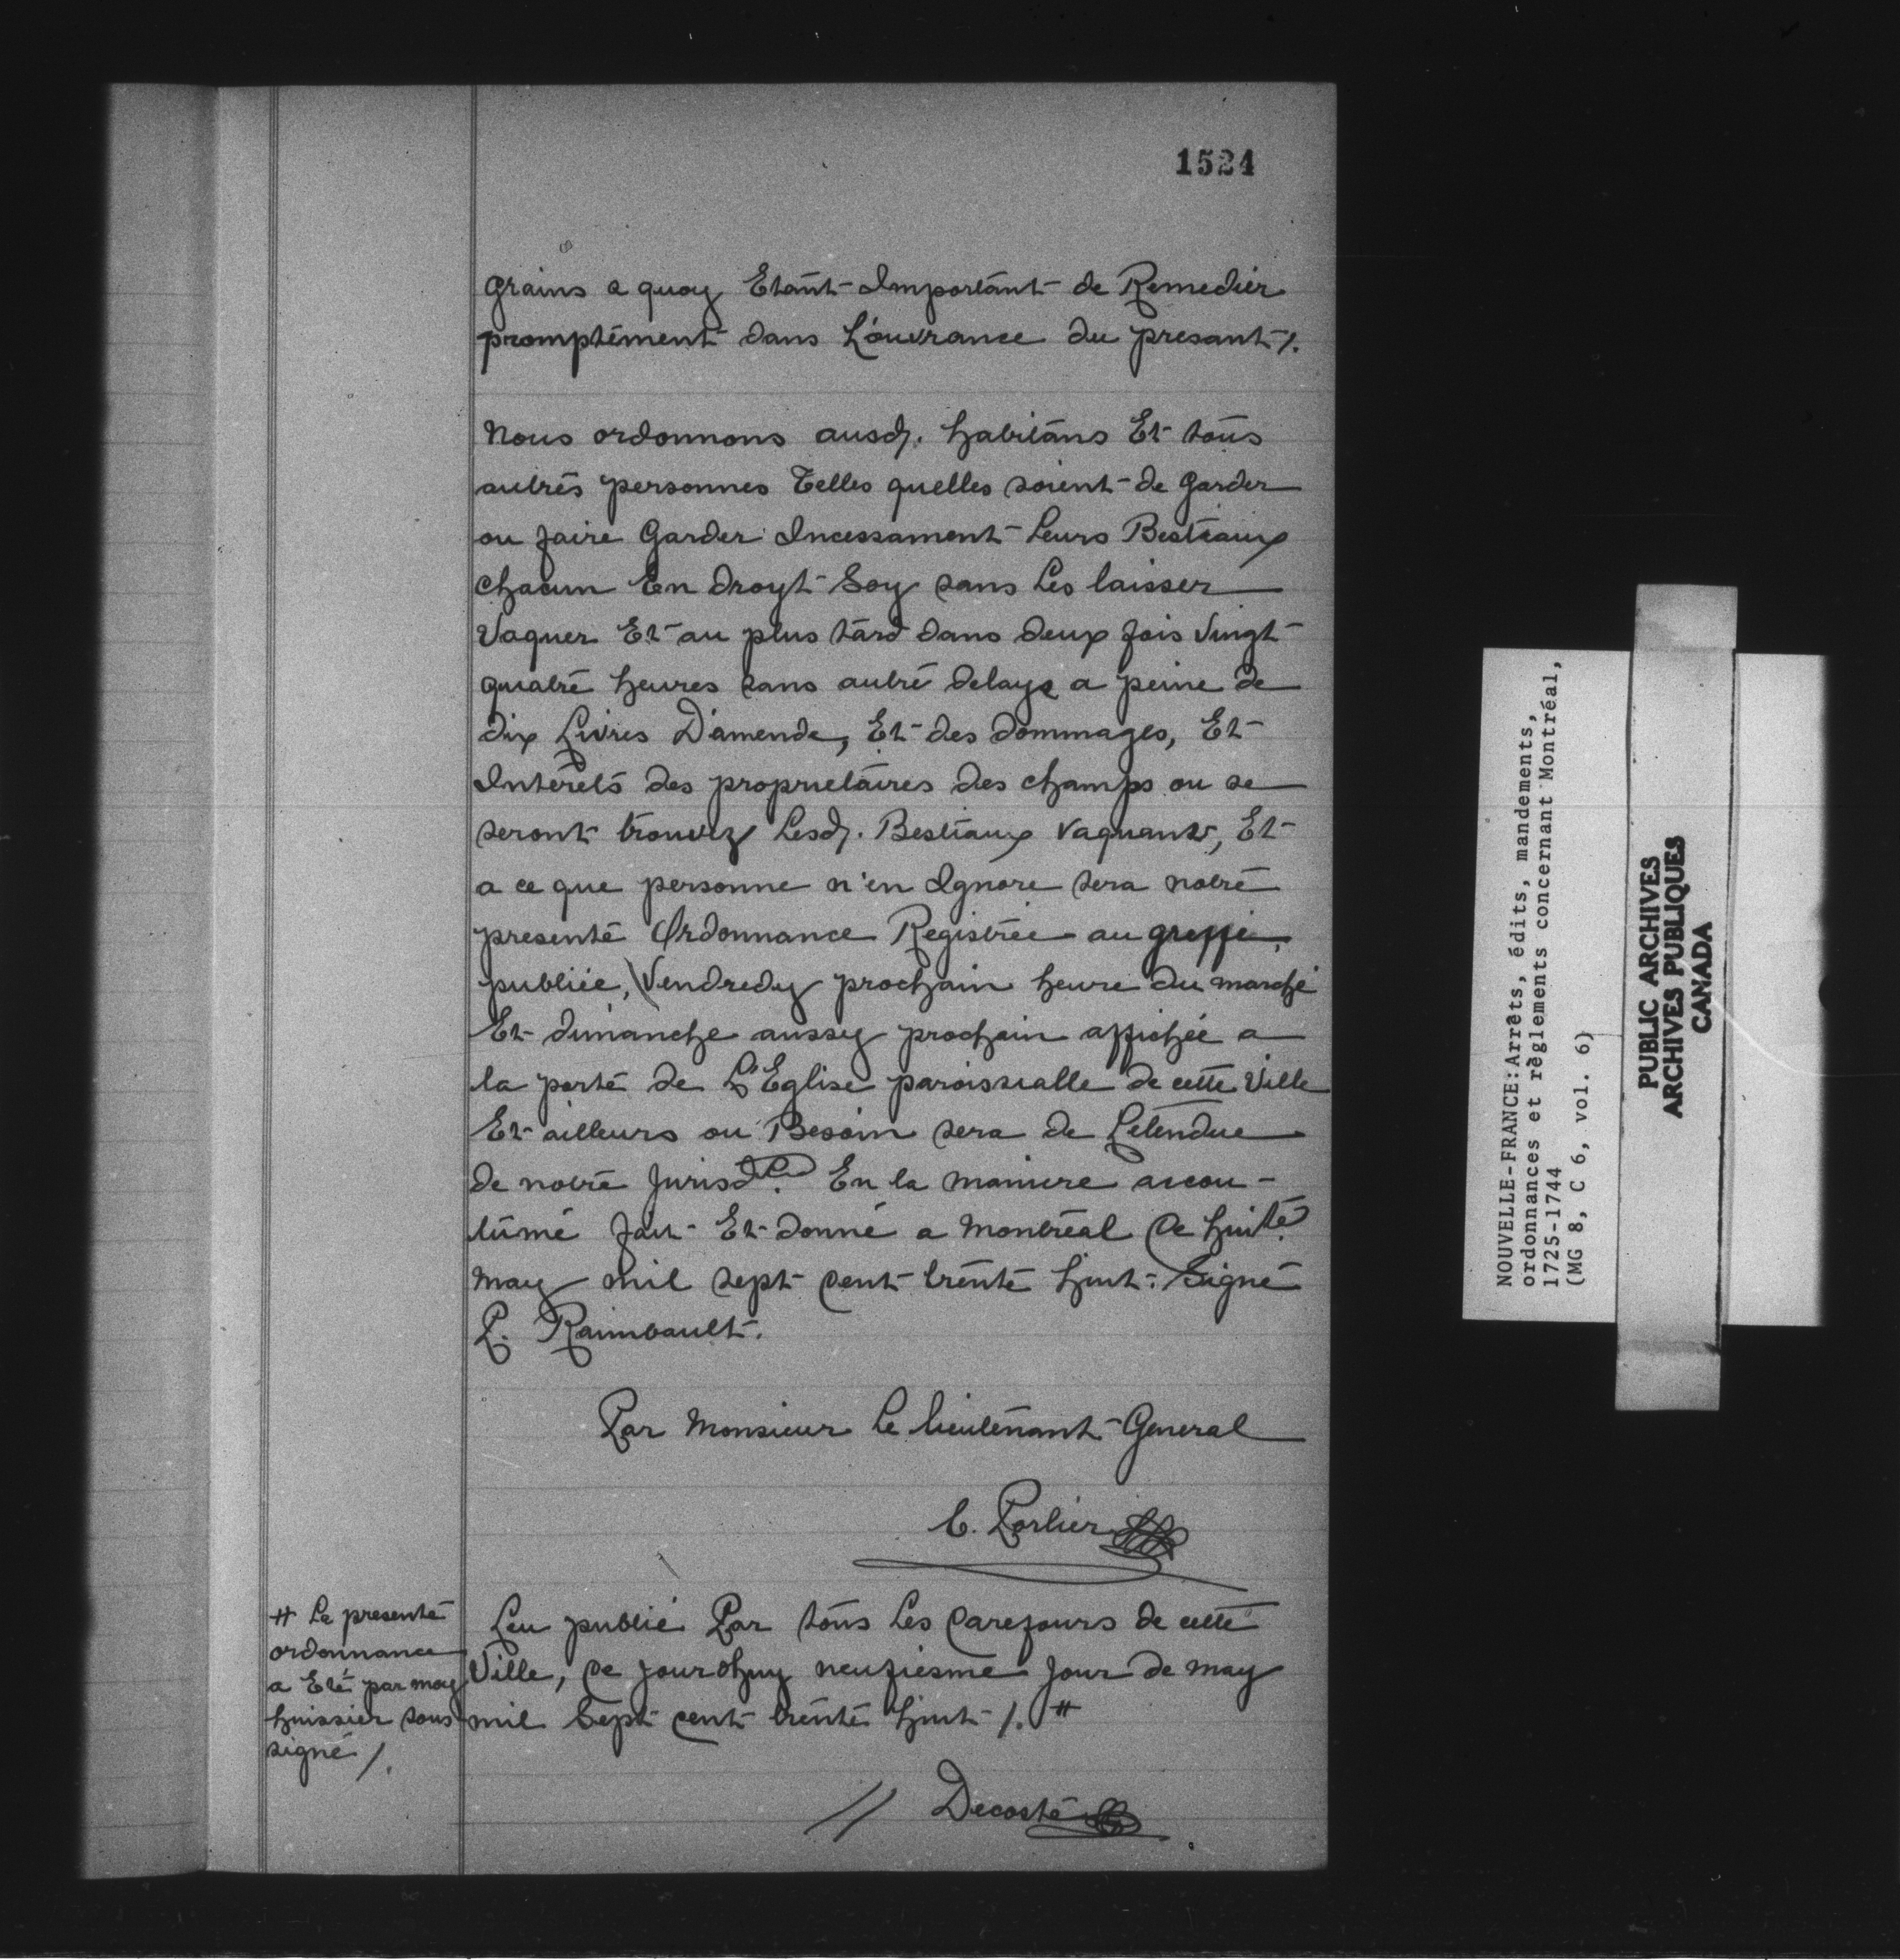 1524
grains a quoy Etant Important de Remedier
promptement dans L'ouvrance du presant /.
Nous ordonnons ausd. habitans Et tous
autres personnes Telles quelles soient de Garder
ou faire Garder Incessament Leurs Bestiaux
chacun En droyt Soy sans Les laisser
Vaquer Et au plus tard dans deux fois Vingt
quatre heures sans autre delays a peine de
dix Livres D'amende, Et des dommages, Et
Interets des proprietaires des champs ou se
seront trouvez Lesd. Bestiaux vaquants, Et
a ce que personne n'en Ignore sera notre
presente Ordonnance Registrée au greffe,
publiée, Vendredy prochain heure du marché
Et dimanche aussy prochain affichée a
la porte de L'Eglise paroissialle de cette Ville
Et ailleurs ou Besoin sera de Letendue
de notre Jurisd.on En la maniere accou-
tumé fait Et donné a Montreal Ce huit.e
may mil sept cent trente huit. Signé
P. Raimbault.
Par Monsieur Le lieutenant General
C. Porlier
# La presente
ordonnance
a Eté par moy
huissier sous
signé /.
Leu publié Par tous Les Carefours de cette
Ville, Ce jourdhuy neufiesme Jour de may
mil Sept cent trente huit /. #
// Decoste
NOUVELLE-FRANCE: Arrêts, édits, mandements,
ordonnances et règlements concernant Montréal,
1725-1744
(MG 8, C 6, vol. 6)
PUBLIC ARCHIVES
ARCHIVES PUBLIQUES
CANADA